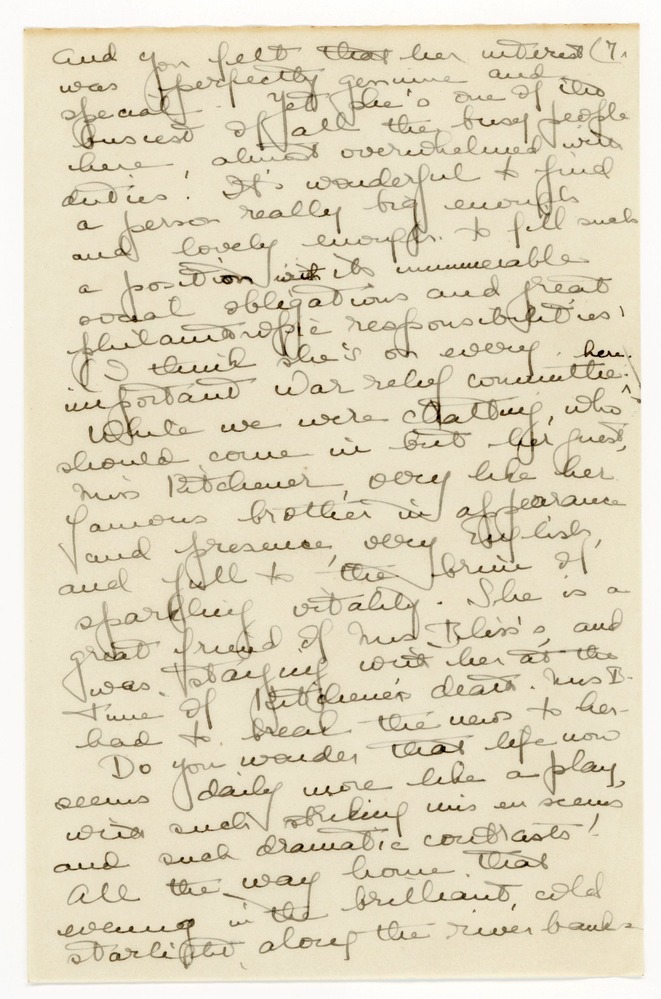 and you felt that her interest (7.
was perfectly genuine and
special. Yet she's one of the
busiest of all the busy people
here, almost overwhelmed with
duties! It's wonderful to find
a person really big enough
and lovely enough to fill such
a position with its innumerable
social obligations and great
philanthropic responsibilities!
I think she's on every
important war relief committee here.
While we were chatting, who
should come in but her guest,
Miss Kitchener, very like her
famous brother in appearance
and presence, very English,
and full to the brim of
sparkling vitality. She is a
great friend of Mrs Bliss's, and
was staying with her at the
time of Kitchener's death. Mrs B-
had to break the news to her-
Do you wonder that life now
seems daily more like a play,
with such striking mis en scenes
and such dramatic contrasts!
All the way home that
evening in the brilliant, cold
starlight, along the river banks